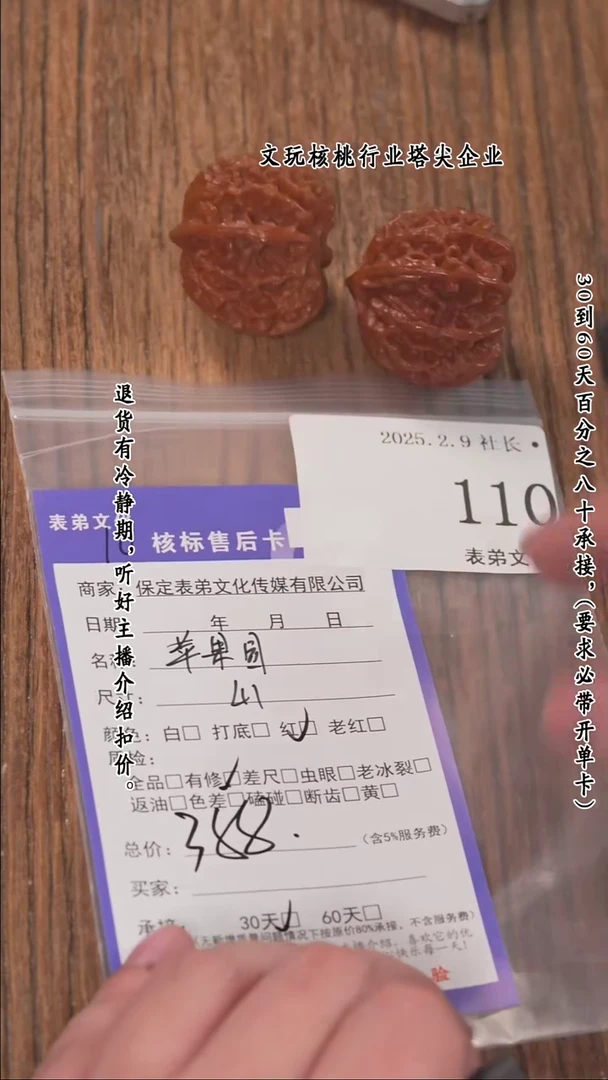 文玩核桃行业塔尖企业
30到60天百分之八十承接，（要求必带开单卡）
退货有冷静期，听好主播介绍扣价。
2025.2.9 社长
110
表弟文
表弟文
核标售后卡
商家 保定表弟文化传媒有限公司
日期 年 月 日
名 苹果园
尺寸： 41
颜色：白□ 打底□ 红□ 老红□
质检：
全品□有修□差尺□虫眼□老冰裂□
返油□色差□磕碰□断齿□黄□
总价： 388. （含5%服务费）
买家：
承接： 30天□ 60天□
无新增质量问题情况下按原价80%承接，不含服务费）
介绍，喜欢它的优
快乐每一天！
验